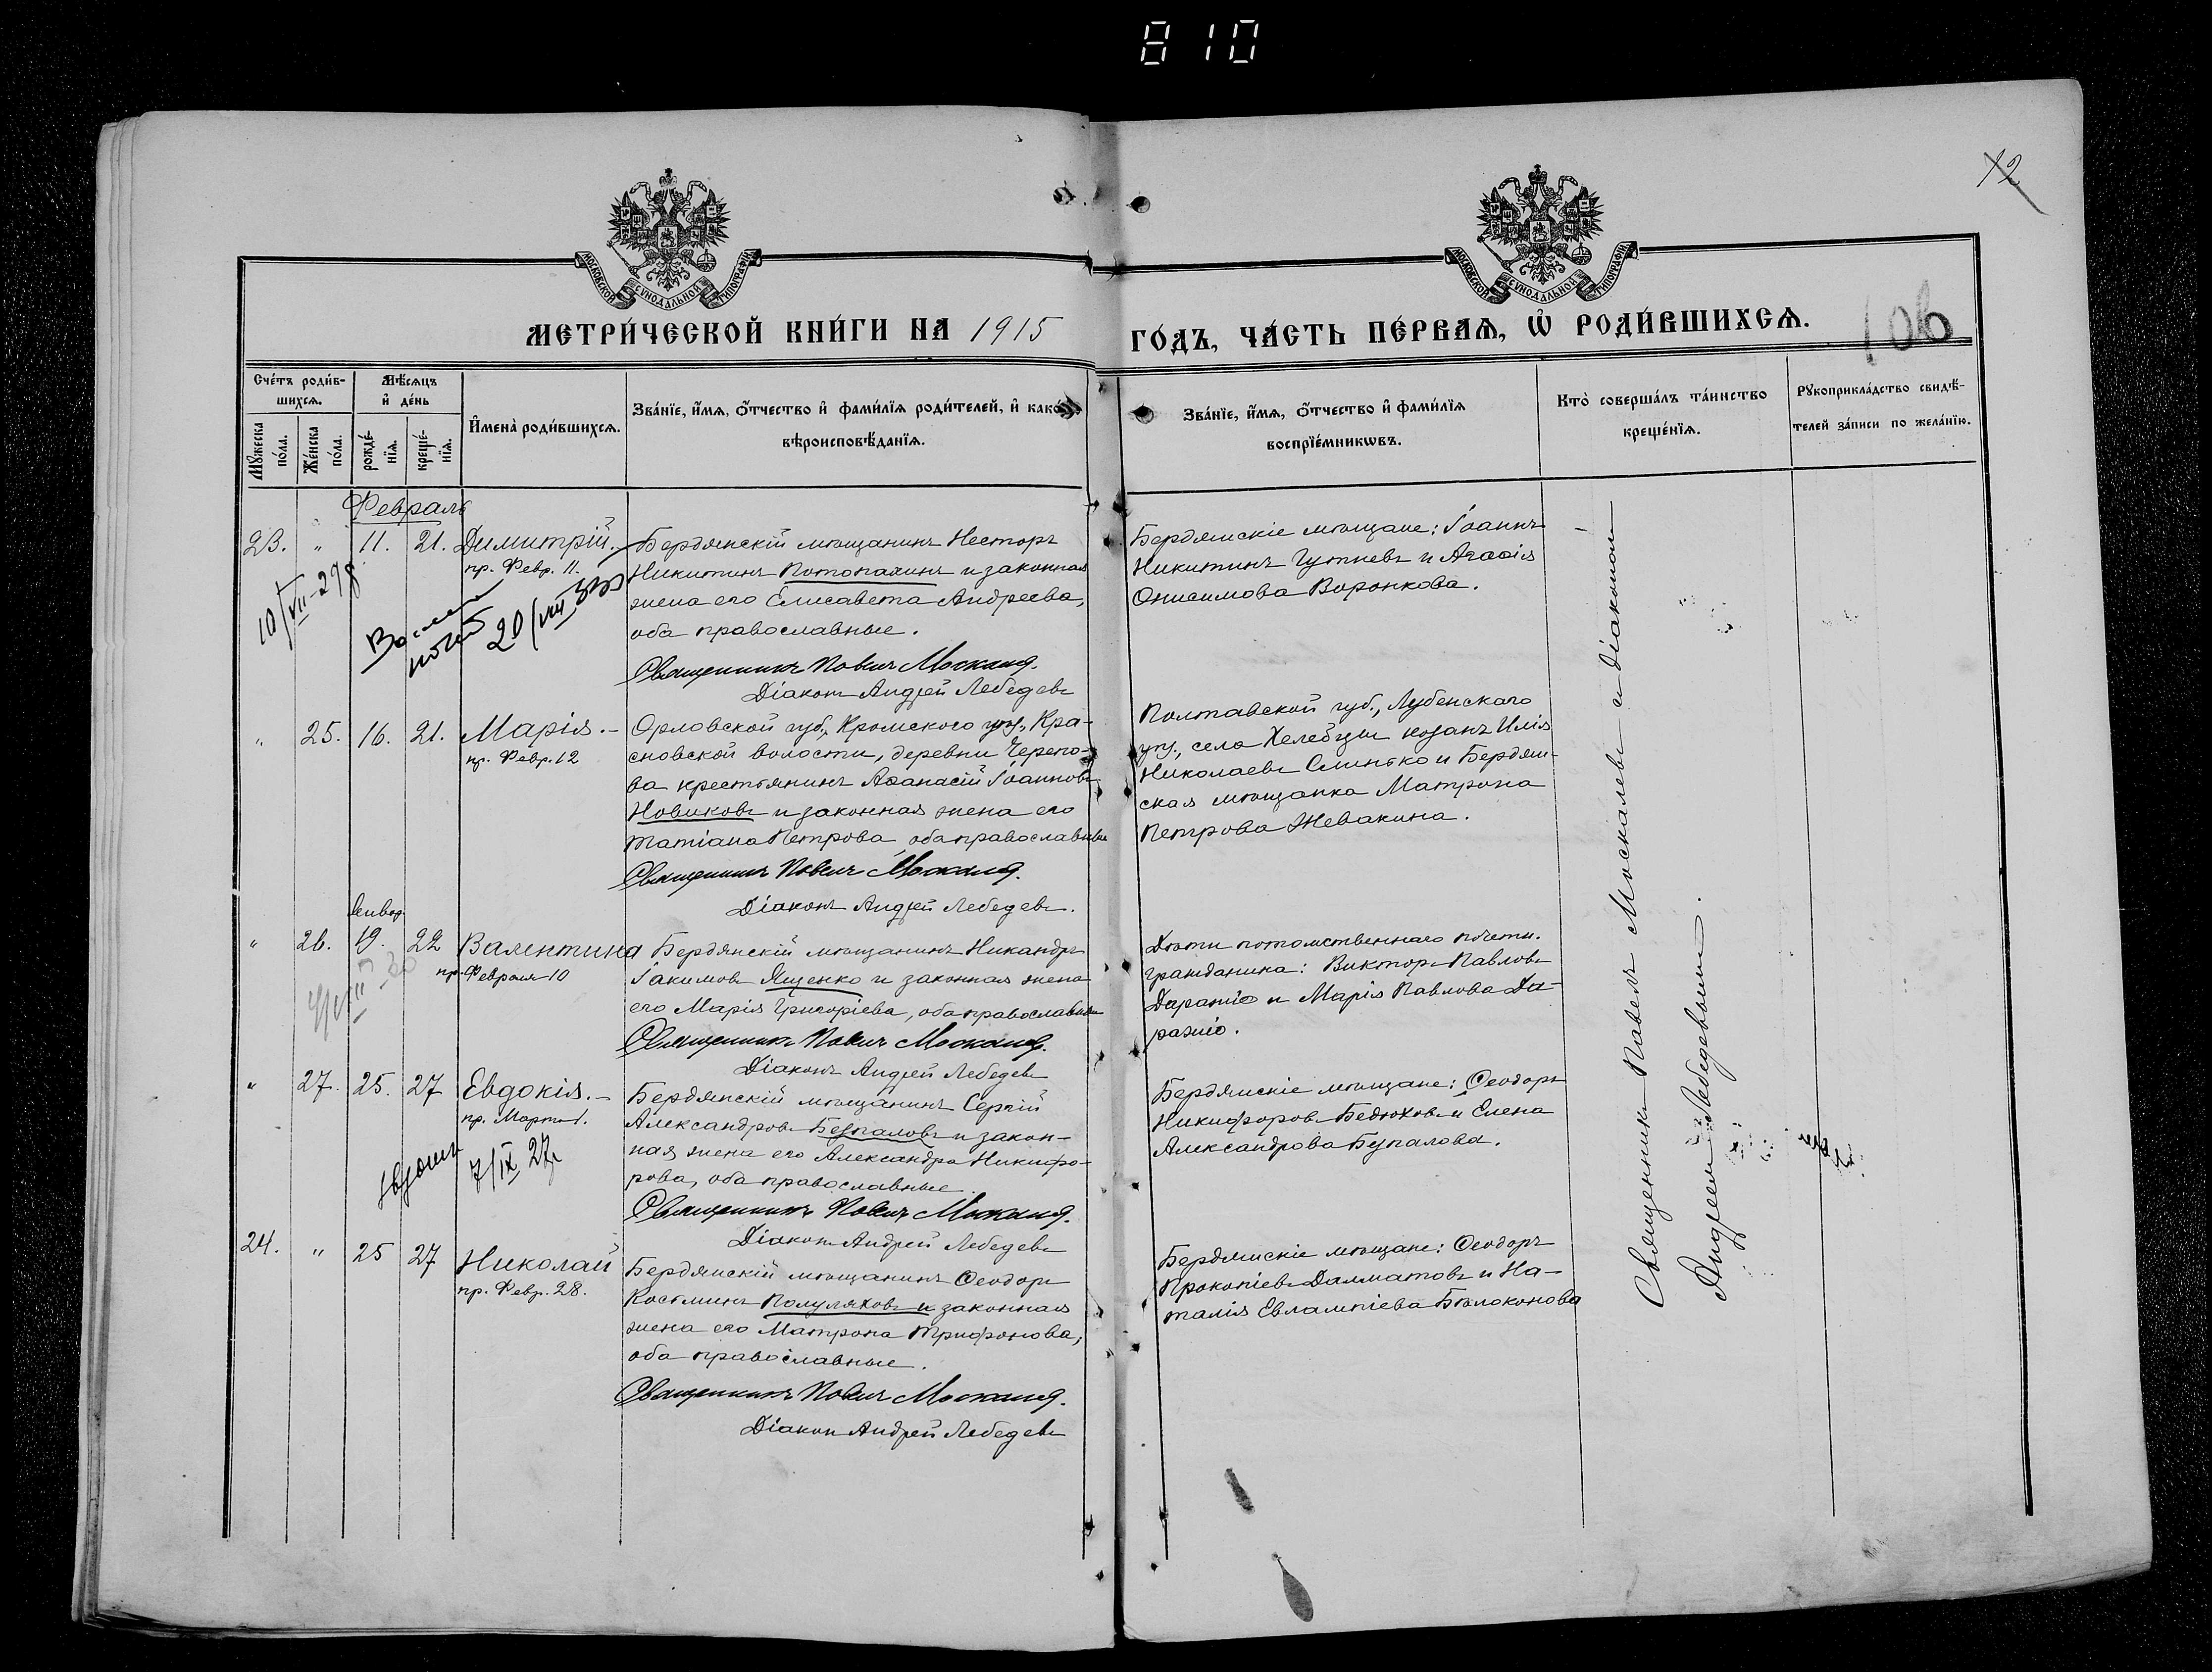 810
12
МОСКОВСКОЙ СѴНОДАЛЬНОЙ ТИПОГРАФІИ
МОСКОВСКОЙ СѴНОДАЛЬНОЙ ТИПОГРАФІИ
МЕТРИ́ЧЕСКОЙ КНИ́ГИ НА 1915
ГО́ДЪ, ЧА́СТЬ ПЕ́РВАѦ, Ѡ҆ РОДИ́ВШИХСѦ.
106
Сче́тъ роди́в-
шихсѧ.
Мѣ́сѧцъ
и҆ де́нь
Мꙋ́жеска
по́ла.
Же́нска
по́ла.
рожде́-
нїѧ.
креще́-
нїѧ.
И҆мена̀ роди́вшихсѧ.
Зва́нїе, и҆́мѧ, ѻ҆́тчество и҆ фами́лїѧ роди́телей, и҆ како́гѡ
вѣроисповѣ́данїѧ.
Зва́нїе, и҆́мѧ, ѻ҆́тчество и҆ фами́лїѧ
воспрїе́мникѡвъ.
Кто̀ соверша́лъ та́инство
креще́нїѧ.
Рꙋкоприкла́дство свидѣ́-
телей за́писи по жела́нїю.
Февраль
23. " 11. 21. Димитрій.
пр. Февр. 11.
Бердянскій мѣщанинъ Несторъ
Никитинъ Потопахинъ и законная
жена его Елисавета Андреева,
оба православные.
Священникъ Павелъ Москалев.
Діаконъ Андрей Лебедевъ
Бердянскіе мѣщане: Іоаннъ
Никитинъ Гутневъ и Агаѳія
Онисимова Воронкова.
" 25. 16. 21. Марія.
пр. Февр. 12
Орловской губ., Кромского уѣз., Кра-
сновской волости, деревни Черепо-
ва крестьянинъ Аѳанасій Іоанновъ
Новиковъ и законная жена его
Татіана Петрова оба православные
Священникъ Павелъ Москалев.
Діаконъ Андрей Лебедевъ.
Полтавской губ., Лубенскаго
уѣз., села козакъ Илія
Николаевъ и Бердян-
ская мѣщанка Матрона
Петрова Жевакина.
Январ.
" 26. 19. 22 Валентина
пр. Февраля 10
Бердянскій мѣщанинъ Никандръ
Іакимовъ Ященко и законная жена
его Марія Григоріева, оба православные
Священникъ Павелъ Москалев.
Діаконъ Андрей Лебедевъ
Дѣти потомственнаго почетн.
гражданина: Викторъ Павловъ
и Марія Павлова
" 27. 25. 27 Евдокія.
пр. Март. 1.
7/IX 27г
Бердянскій мѣщанинъ Сергій
Александровъ Безпаловъ и закон-
ная жена его Александра Никифо-
рова, оба православные.
Священникъ Павелъ Москалев.
Діаконъ Андрей Лебедевъ
Бердянскіе мѣщане: Ѳеодоръ
Никифоровъ Бедюховъ и Елена
Александрова Безпалова.
24. " 25 27 Николай
пр. Февр. 28.
Бердянскій мѣщанинъ Ѳеодоръ
Костминъ Полуляховъ и законная
жена его Матрона Трифонова,
оба православные.
Священникъ Павелъ Москалев.
Діаконъ Андрей Лебедевъ
Бердянскіе мѣщане: Ѳеодоръ
Прокопіевъ Далматовъ и На-
талія Евлампіева Бѣлоконова
Священникъ Павелъ Москалевъ и діакономъ
Андреемъ Лебедевымъ.